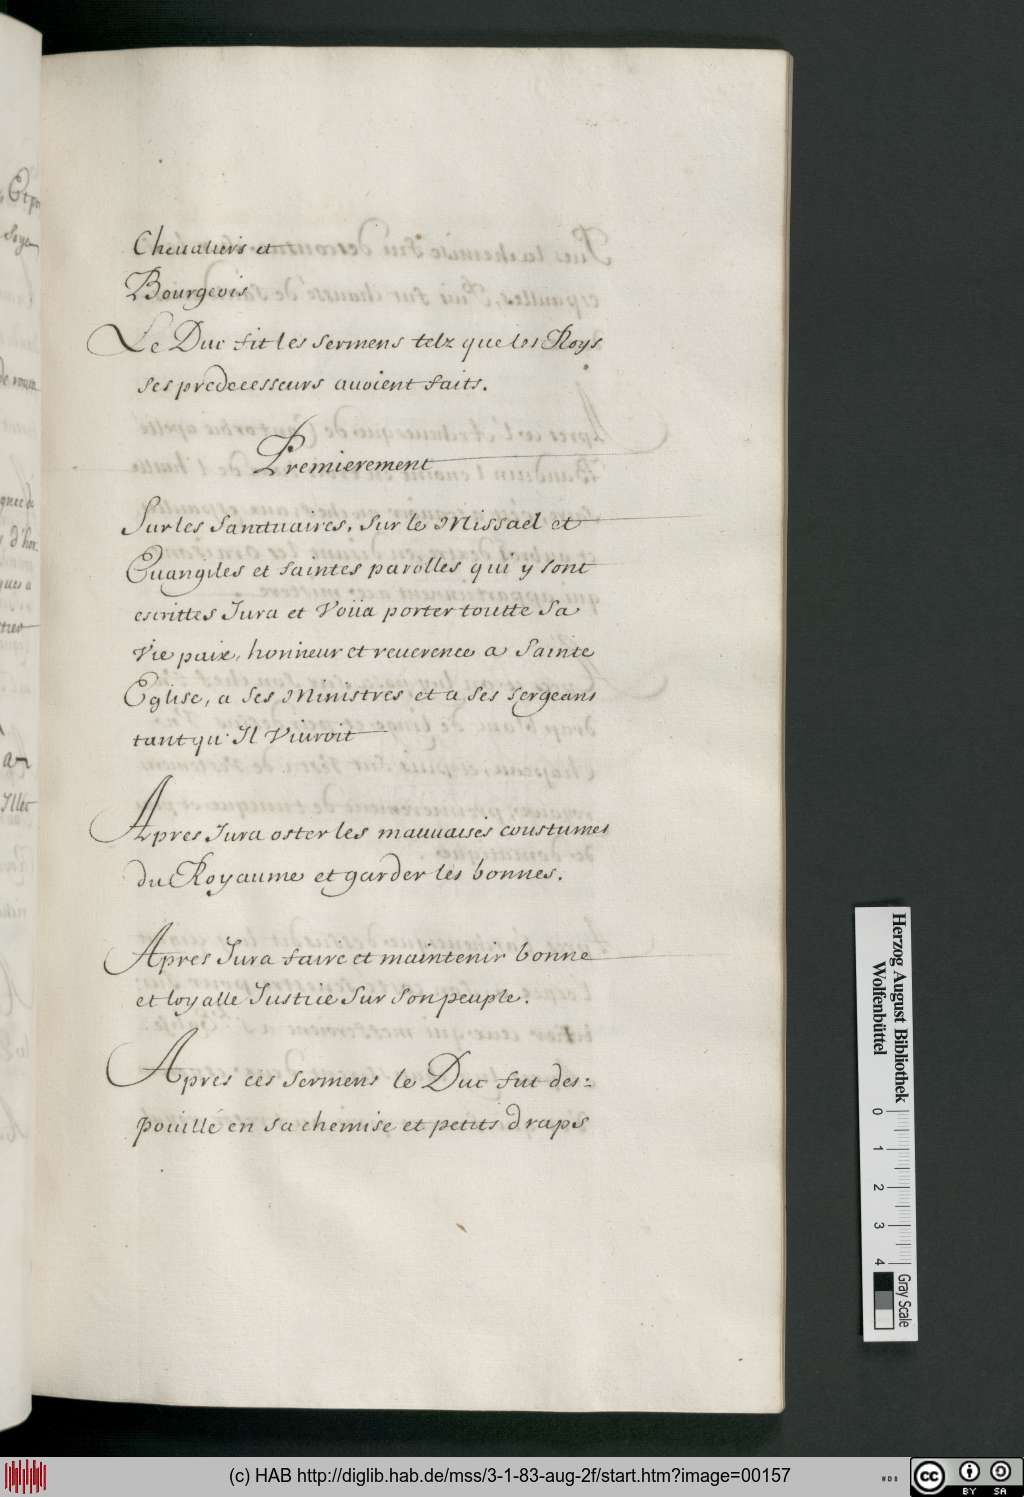 Cheualiers et
Bourgeois
Le Duc fit les sermens telz que les Roys
ses predecesseurs auoient faits.
Premierement
Sur les Sanctuaires, Sur le Missael et
Euangiles et saintes parolles qui y sont
escrittes Jura et Voüa porter toutte Sa
Vie paix, honneur et reuerence a Sainte
Eglise, a Ses Ministres et a Ses sergeans
tant qu' Il Viuroit
Apres Jura oster les mauuaises coustumes
du Royaume et garder les bonnes.
Apres Jura faire et maintenir bonne
et loyalle Justice Sur Son peuple.
Apres ces Sermens le Duc fut des:
pouillé en sa chemise et petits draps
Herzog August Bibliothek
Wolfenbüttel
0 1 2 3 4
Gray Scale
(c) HAB http://diglib.hab.de/mss/3-1-83-aug-2f/start.htm?image=00157
WDB
cc
BY SA